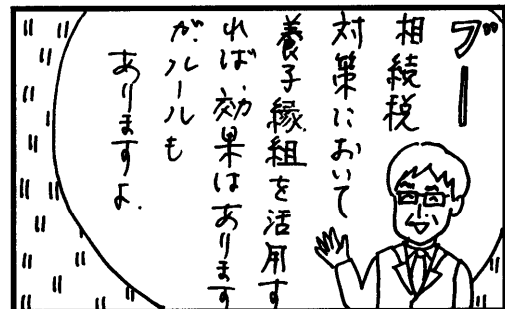 ブー
相続税
対策において
養子縁組を活用す
れば、効果はあります
が、ルールも
ありますよ.